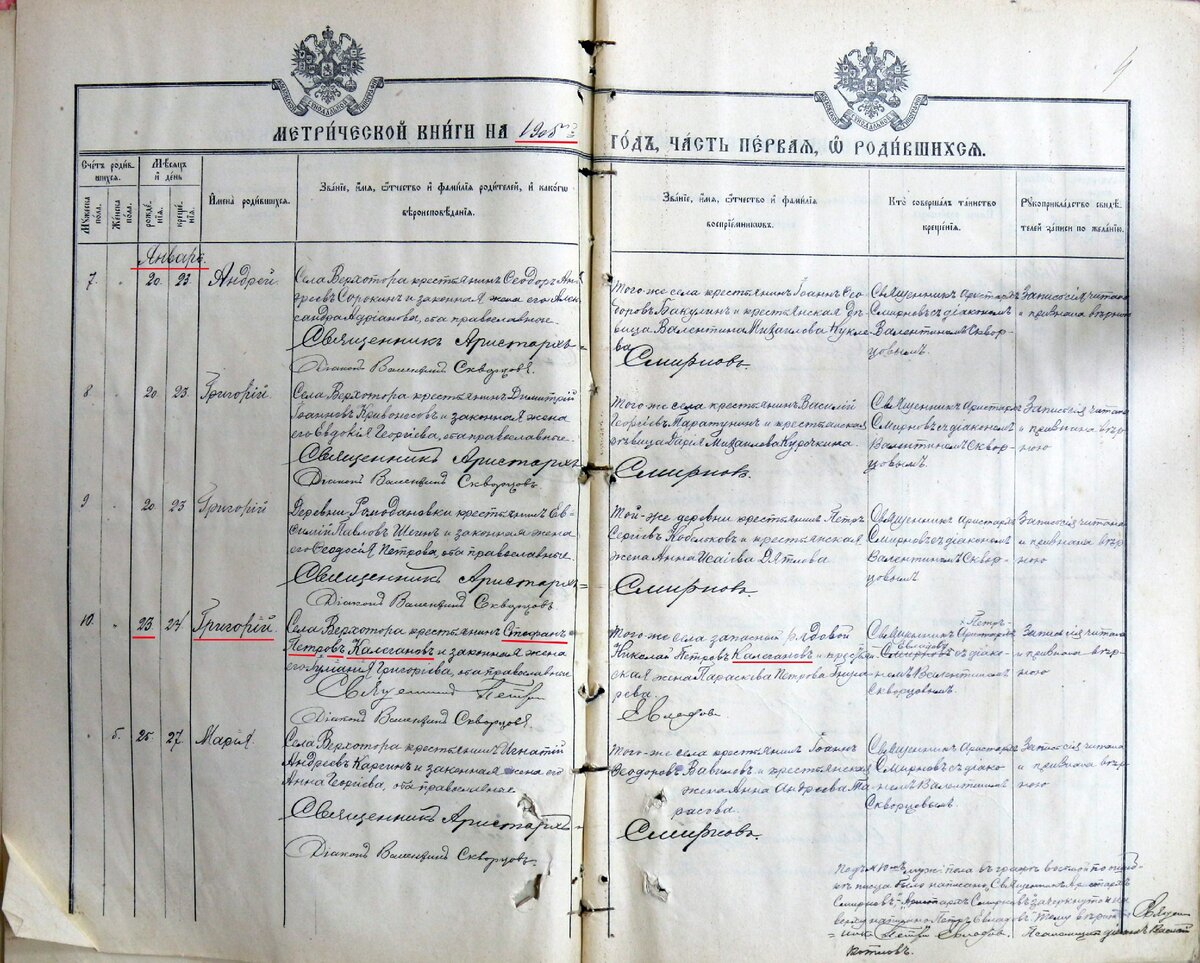 МЕТРИ́ЧЕСКОЙ КНИ́ГИ НА 1906й
ГО́ДЪ, ЧА́СТЬ ПЕ́РВАЯ, Ѿ РОДИ́ВШИХСЯ.
Сче́тъ роди́в-
шихся.
Му́жеска по́ла.
Же́нска по́ла.
Мѣ́сяцъ
и҆ де́нь
рожде́нія.
креще́нія.
И҆мена роди́вшихся.
Зва́ніе, и҆́мя, ѻ҆́тчество и҆ фами́лія роди́телей, и҆ како́гѡ
вѣроисповѣ́данія.
Зва́ніе, и҆́мя, ѻ҆́тчество и҆ фами́лія
воспріе́мниковъ.
Кто̀ соверша́лъ та́инство
креще́нія.
Рꙋкоприкла́дство свидѣ́-
телей за́писи по жела́нію.
Январь.
7. 20. 23. Андрей.
Села Верхотора крестьянинъ Ѳеодоръ Ан-
дреевъ Сорокинъ и законная жена его Алек-
сандра Адріанова, оба православные.
Священникъ Аристархъ
Діаконъ Валентинъ Скворцовъ.
Того-же села крестьянинъ Іоаннъ Ѳео-
доровъ Бакулинъ и крестьянская дѣ-
вица Валентина Михаилова Кукле-
ва
Смирновъ.
Священникъ Аристархъ
Смирновъ съ діакономъ
Валентиномъ Сквор-
цовымъ.
Запись сія читана
и признана вѣрною
8 20. 23. Григорій.
Села Верхотора крестьянинъ Димитрій
Іоанновъ Кривоносовъ и законная жена
его Евдокія Георгіева, оба православные.
Священникъ Аристархъ
Діаконъ Валентинъ Скворцовъ.
Того-же села крестьянинъ Василій
Георгіевъ Таратунинъ и крестьянская
дѣвица Дарія Михаилова Курочкина.
Смирновъ.
Священникъ Аристархъ
Смирновъ съ діакономъ
Валентиномъ Сквор-
цовымъ.
Запись сія читана
и признана вѣр-
ною
9 20. 23 Григорій
Деревни Ромодановки крестьянинъ Ев-
фимій Павловъ Шегинъ и законная жена
его Ѳеодосія Петрова, оба православные.
Священникъ Аристархъ
Діаконъ Валентинъ Скворцовъ.
Той-же деревни крестьянинъ Петръ
Сергіевъ Кобылковъ и крестьянская
жена Анна Исаіева Дятлова
Смирновъ.
Священникъ Аристархъ
Смирновъ съ діакономъ
Валентиномъ Сквор-
цовымъ
Запись сія читана
и признана вѣр-
ною
10. 23 24 Григорій.
Села Верхотора крестьянинъ Стефанъ
Петровъ Калгановъ и законная жена
его Іуліанія Григоріева, оба православные
Священникъ Петръ
Діаконъ Валентинъ Скворцовъ.
Того-же села запасный рядовой
Николай Петровъ Калгановъ и крестьян-
ская жена Параскева Петрова
рева.
Евладовъ
Петръ
Священникъ Аристархъ
Евладовъ
Смирновъ съ діако-
номъ Валентиномъ
Скворцовымъ.
Запись сія читана
и признана вѣр-
ною
5. 25. 27. Марія.
Села Верхотора крестьянинъ Игнатій
Андреевъ Каргинъ и законная жена его
Анна Георгіева, оба православные.
Священникъ Аристархъ
Діаконъ Валентинъ Скворцовъ.
Того-же села крестьянинъ Іоаннъ
Ѳеодоровъ Вавиловъ и крестьянская
жена Анна Андреева Та-
расова.
Смирновъ.
Священникъ Аристархъ
Смирновъ съ діако-
номъ Валентиномъ
Скворцовымъ.
Запись сія читана
и признана вѣр-
ною
Подъ № 10-мъ мужескаго пола въ графѣ
было написано „Священникъ Аристархъ
Смирновъ" Аристархъ Смирновъ зачеркнуто и на
верху написано Петръ Евладовъ. Тому вѣрить
Священ-
никъ Петръ Евладовъ. Псаломщикъ діаконъ
Котловъ.